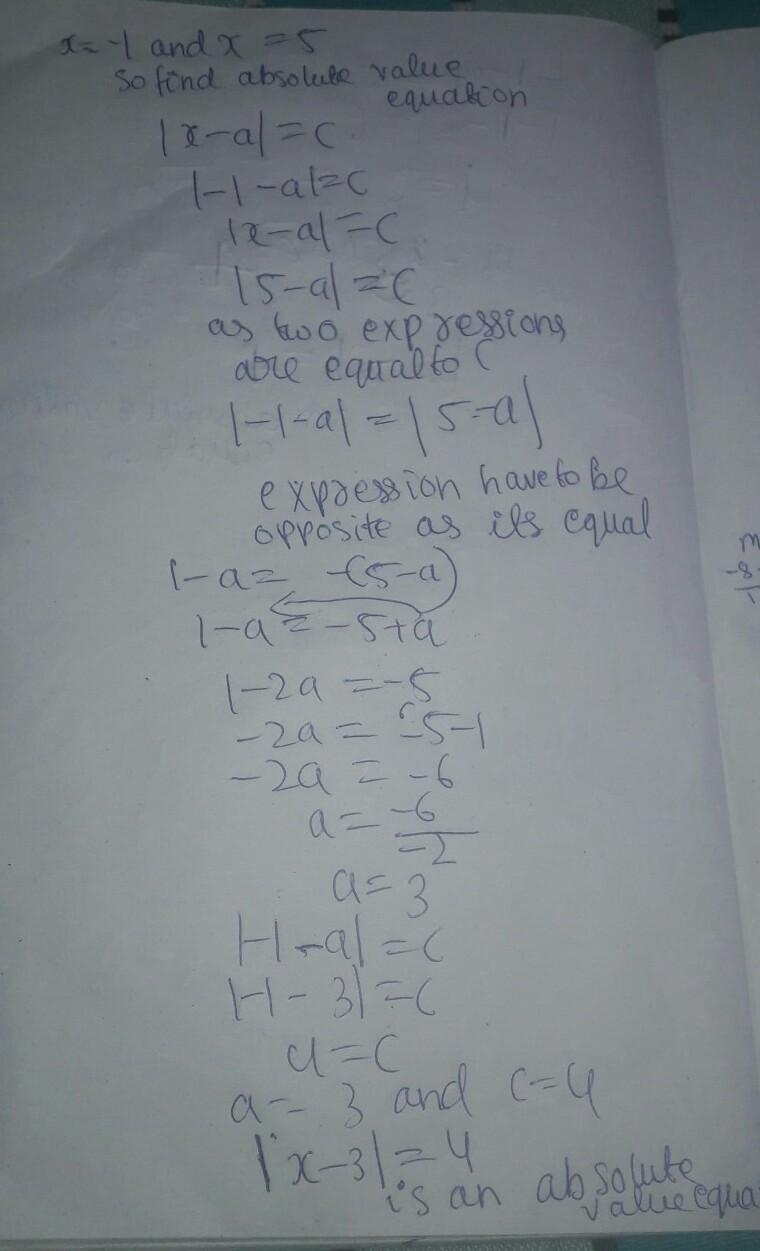 x=-1 and x =5
So find absolute value
equation
|x-a|=C
|-1-a|=C
|x-a|=C
|5-a|=C
as two expressions
are equal to C
|-1-a| = |5-a|
expression have to be
opposite as its equal
1-a= -(5-a)
1-a=-5+a
1-2a =-5
-2a = -5-1
-2a = -6
a= -6
-2
a=3
|-1-a|=C
|-1-3|=C
4=C
a= 3 and C=4
|x-3|=4
is an absolute
value equa
m
-8
1